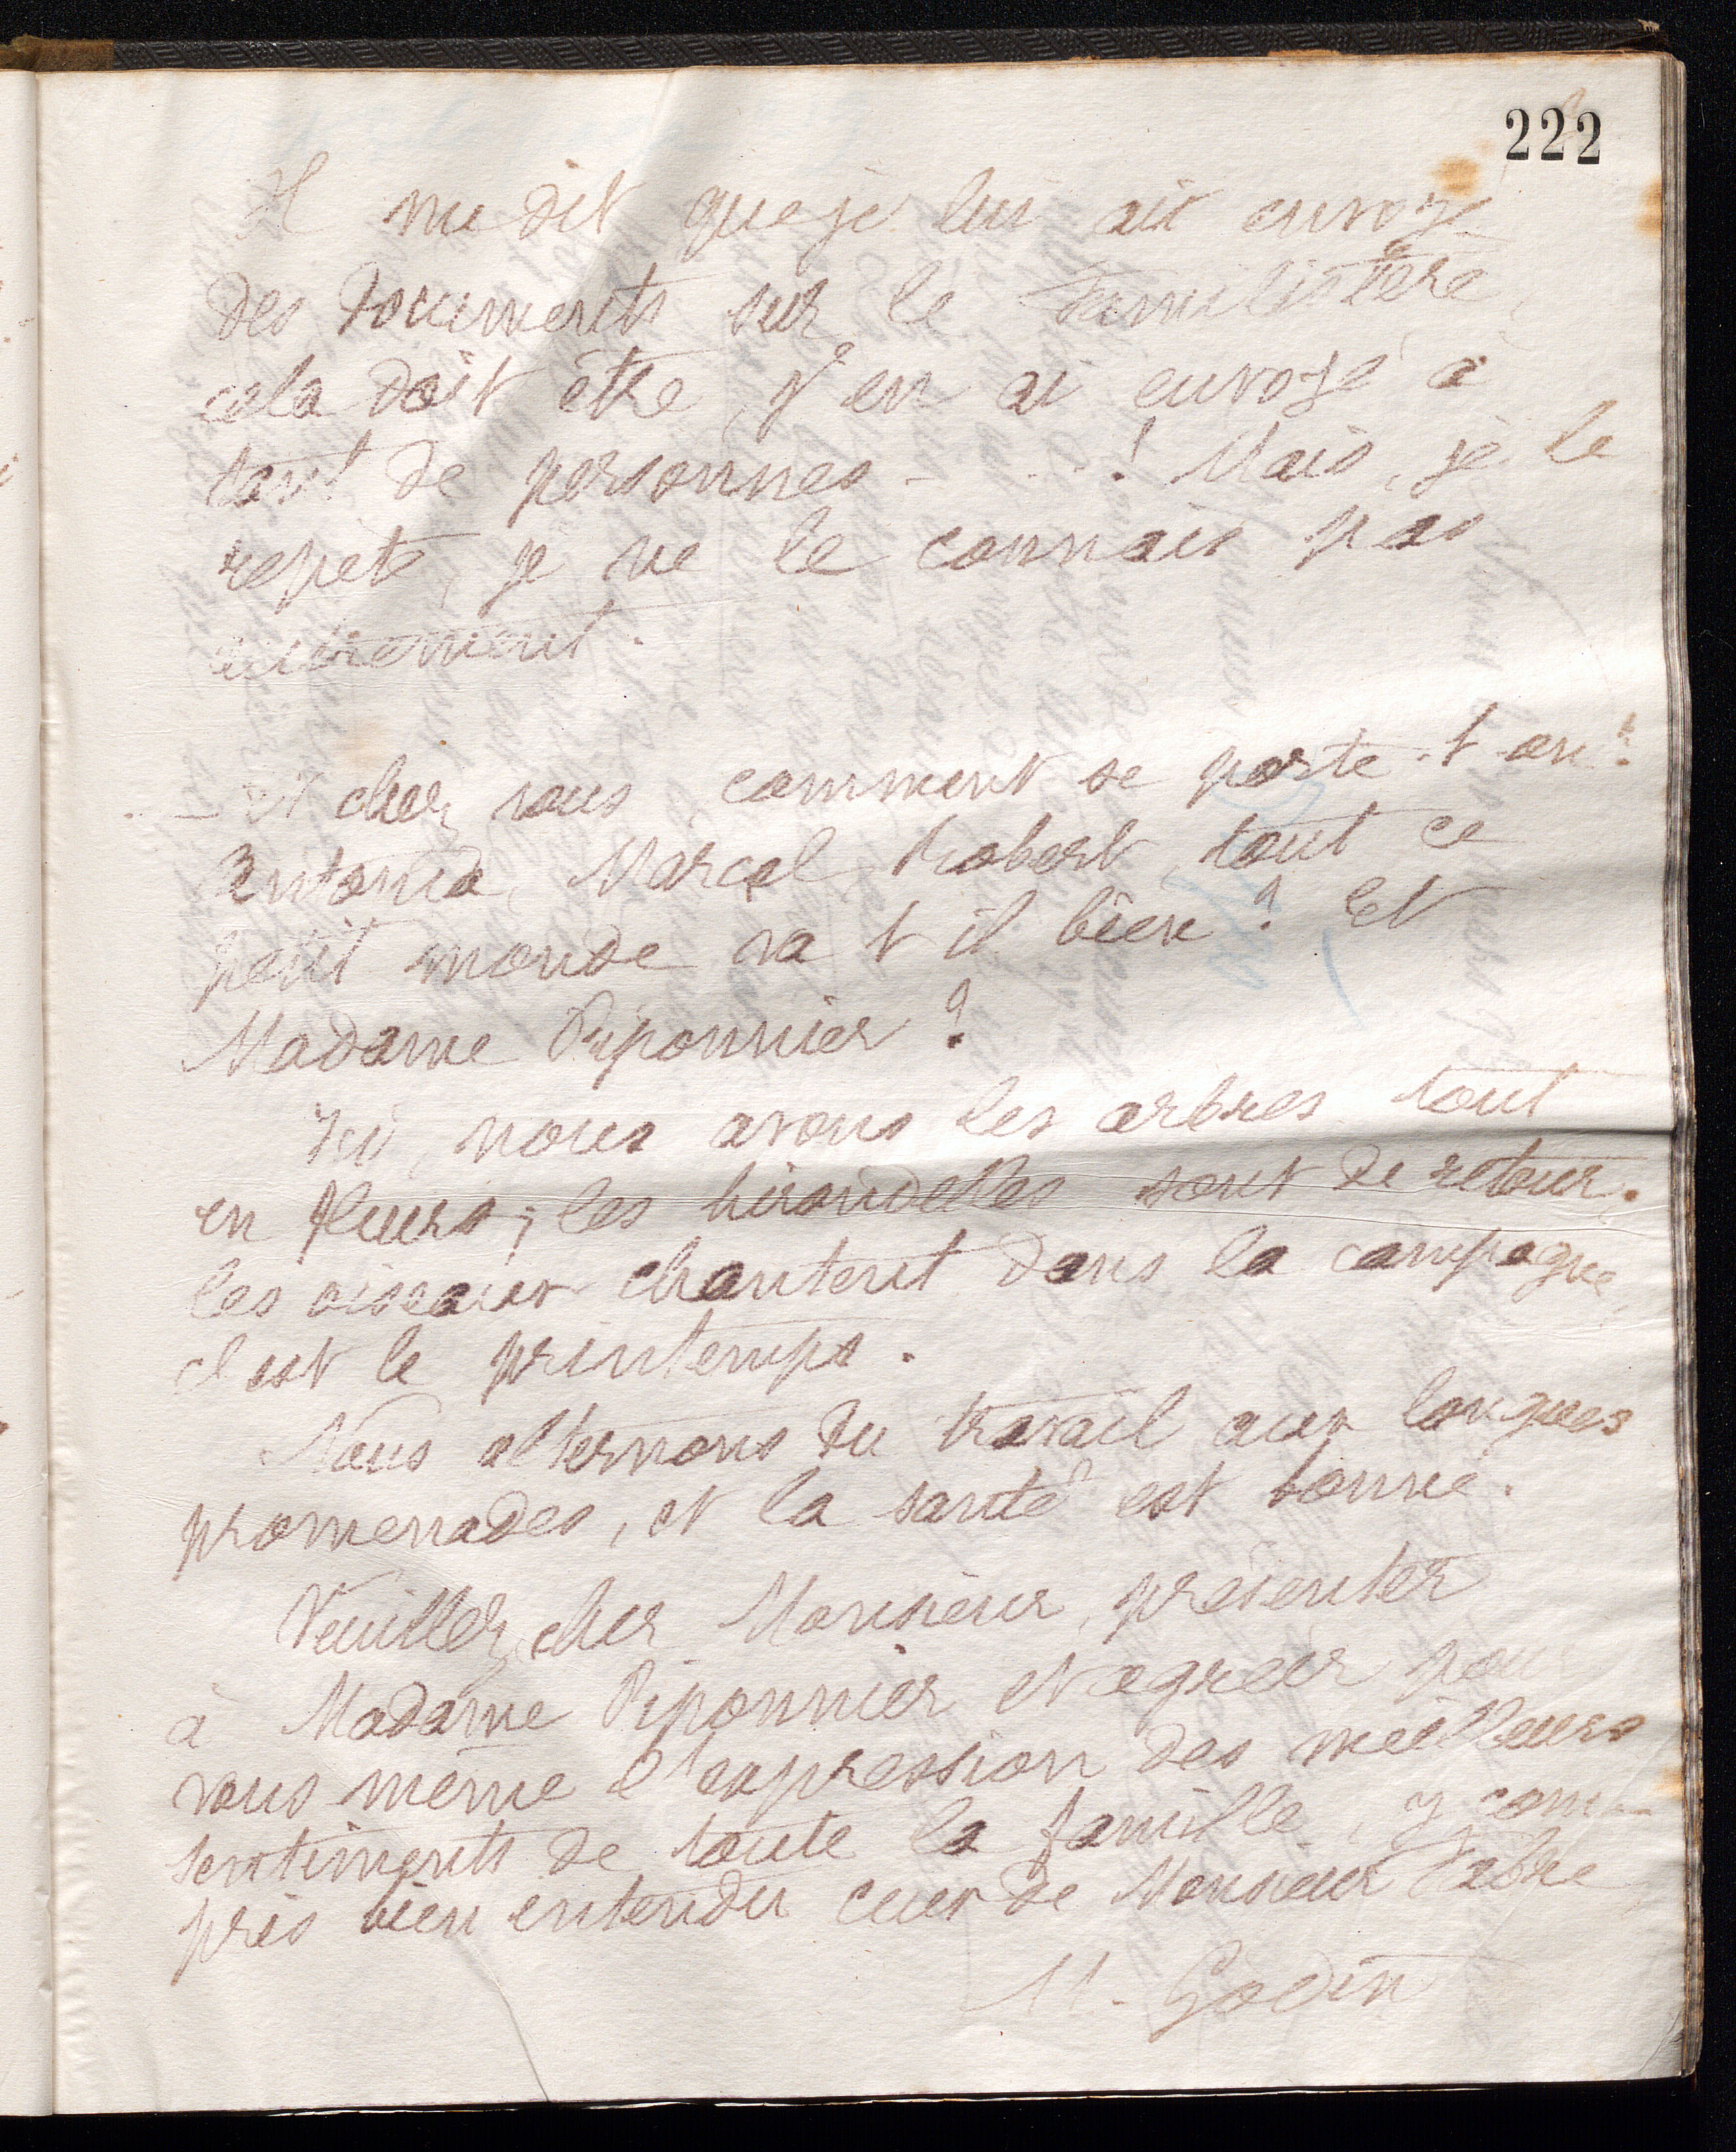 222
Il me dit que je lui ait envoyé
des documents sur le Familistère,
cela doit être, j'en ai envoyé à
tant de personnes - . . . ! Mais, je le
repète, je ne le connais pas
autrement.
. _ Et chez vous, comment se porte-t-on?
Antonia, Marcel, Robert, tout ce
petit monde va t il bien? Et
Madame Piponnier?
Ici, nous avons les arbres tout
en fleurs; les hirondelles sont de retour.
les oiseaux chantent dans la campagne,
c'est le printemps.
Nous alternons du travail aux longues
promenades, et la santé est bonne.
Veuillez, cher Monsieur, présenter
à Madame Piponnier et agréer pour
vous même l'expression des meilleurs
sentiments de toute la famille, y com-
pris bien entendu ceux de Monsieur Fabre
M. Godin